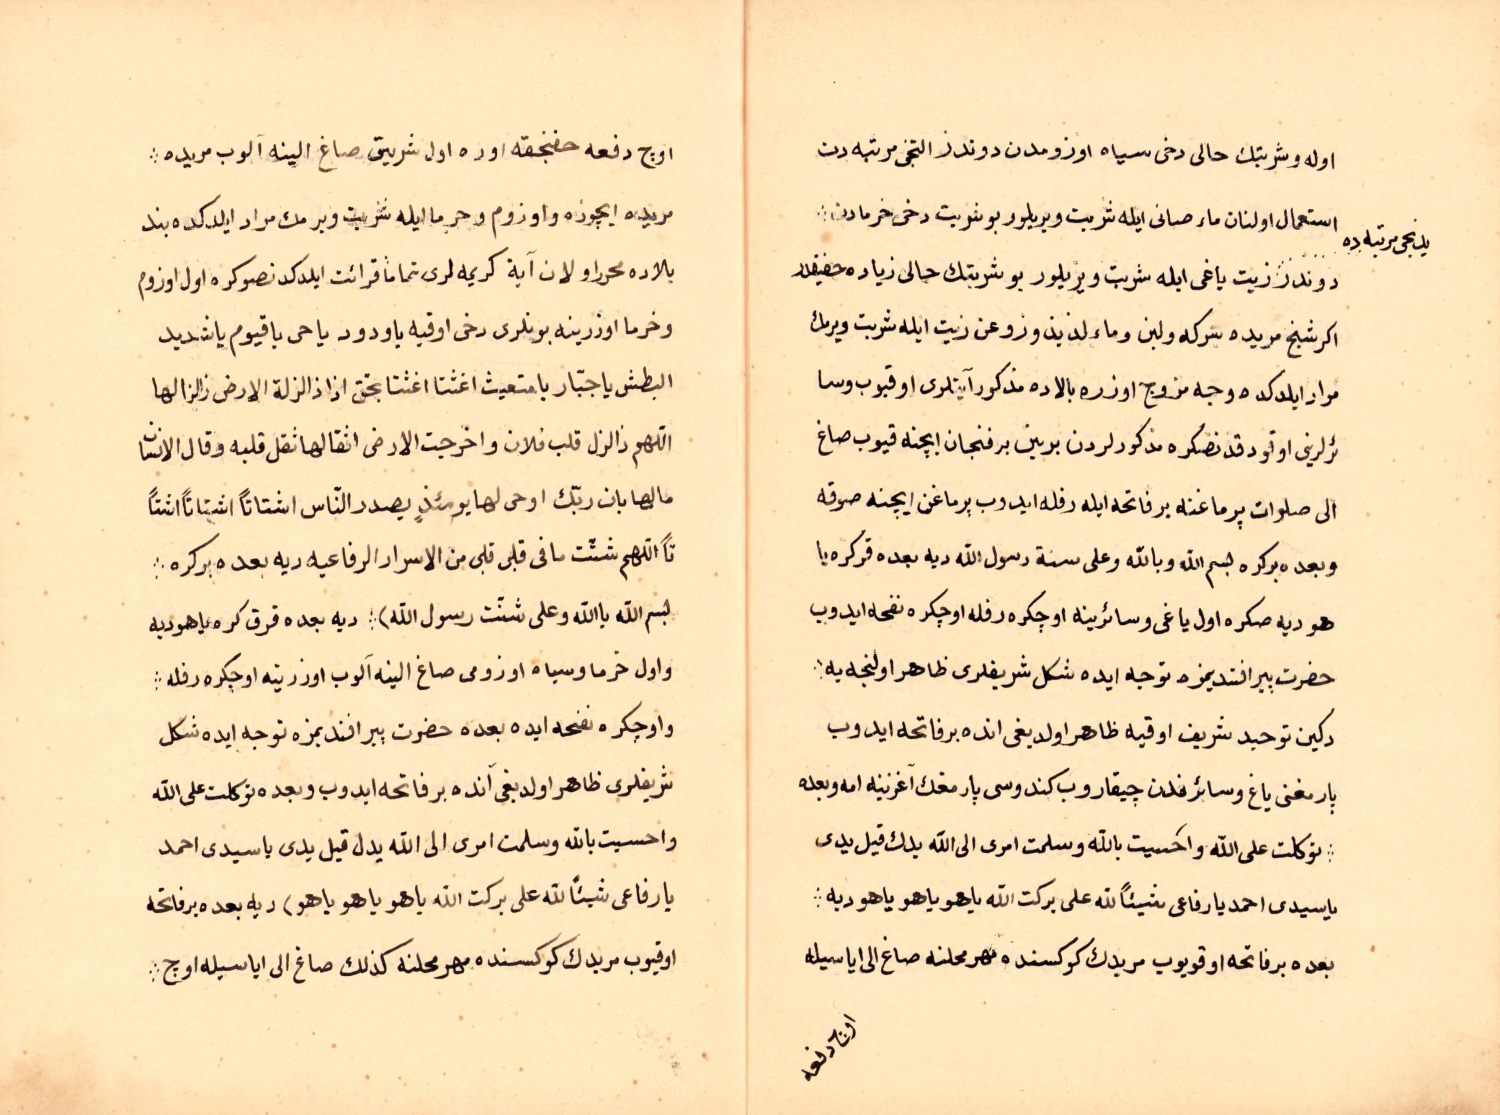 اوله وشربتك حالى دخى سياه اوزومدن دوندز التنجى مرتبه دن
استعمال اولنان ماء صافى ايله شربت ويريلور بو شربت دخى خرمادن ؞
يدنجى مرتبه ده
دوندز زيت ياغى ايله شربت ويريلور بو شربتك حالى زياده خفيفدر
اكر شيخ مريده سركه ولبن وماء لذيذ وزوعن زيت ايله شربت ويرمك
مراد ايلدكده وجه مزوج اوزره بالاده مذكور آيتلرى اوقيوب وسا
ئرلرينى اوقودقدنصكره مذكورلردن بريين بر فنجان ايچنه قيوب صاغ
الى صلوات پرماغنه بر فاتحه ايله رفله ايدوب پرماغن ايچنه صوقه
وبعده بركره بسم الله وبالله وعلى سنة رسول الله ديه بعده قرق كره يا
هو ديه صكره اول ياغى وسائرينه اوچكره رفله اوچكره نفحه ايدوب
حضرت پير افنديمزه توجه ايده شكل شريفلرى ظاهر اولنجه يه ؞
دكين توحيد شريف اوقيه ظاهر اولديغى انده بر فاتحه ايدوب
پارمغنى ياغ وسائرفلدن چيقاروب كندوسى پارمغك آغزينه امه وبعده
؞ توكلت على الله واحسيت بالله وسلمت امرى الى الله يدك قيل يدى
ياسيدى احمد يارفاعى شيئاً لله على بركت الله ياهو ياهو ياهو ديه ؞
بعده بر فاتحه اوقويوب مريدك كوكسنده مهر محلنه صاغ الى اياسيله
اوچ دفعه
اوچ دفعه خفنجقه اوره اول شربتى صاغ الينه آلوب مريده ؞
مريده ايچوره واوزوم وخرما ايله شربت ويرمك مراد ايلدكده بند
بالاده محرر اولان آية كريمه لرى تماماً قرائت ايلدكدنصوكره اول اوزوم
وخرما اوزرينه بونلرى دخى اوقيه ياودود ياحى ياقيوم ياشديد
البطش ياجبّار يامتعيث اغثنا اغثنا بحق اذا ذالزلة الارض زلزالها
اللهم ذالزل قلب فلان واخرجت الارض اثقالها ثقل قلبه وقال الانسان
مالها بان ربّك اوحى لها يومئذٍ يصدر النّاس اشتاتاً اشتاتاً اشتاً
تاً اللهم شتّت مافى قلبى قلبى من الاسرار الرفاعيه ديه بعده بركره ؞
بسم الله ياالله وعلى شنّت رسول الله) ؞ ديه بعده قرق كره ياهو ديه
واول خرما وسياه اوزومى صاغ الينه آلوب اوزرينه اوچكره رفله ؞
واوچكره نفحه ايده بعده حضرت پير افنديمزه توجه ايده شكل
شريفلرى ظاهر اولديغى آنده بر فاتحه ايدوب وبعده توكلت على الله
واحسيت بالله وسلمت امرى الى الله يدل قيل يدى ياسيدى احمد
يارفاعى شيئاً لله على بركت الله ياهو ياهو ياهو) ديه بعده بر فاتحه
اوقيوب مريدك كوكسنده مهر محلنه كذلك صاغ الى اياسيله اوچ ؞